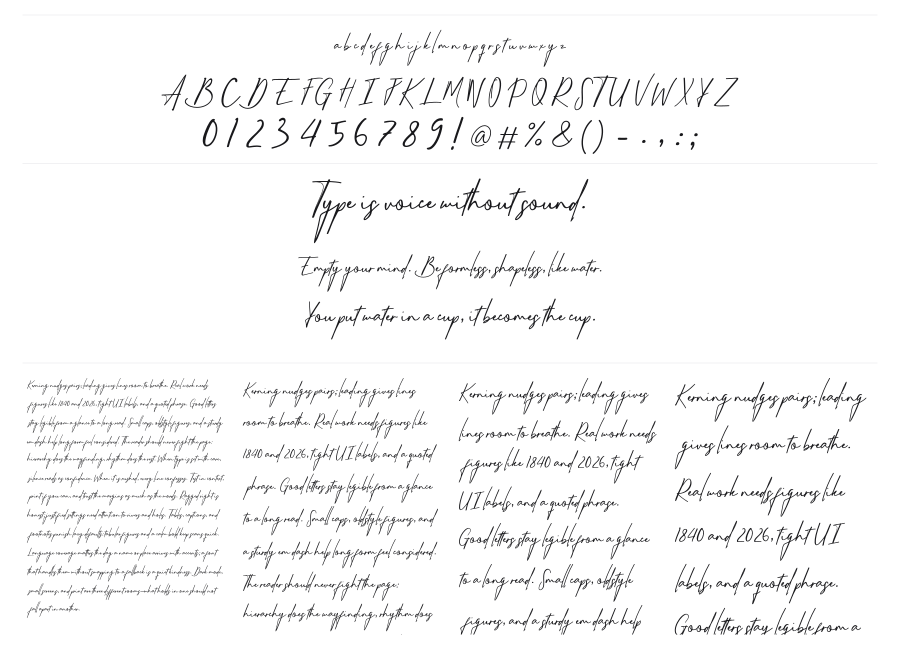 abcdefghijklmnopqrstuvwxyz
ABCDEFGHIJKLMNOPQRSTUVWXYZ
0123456789!@#%&()-.,:;
Type is voice without sound.
Empty your mind. Be formless, shapeless, like water.
You put water in a cup, it becomes the cup.
Kerning nudges pairs; leading gives lines room to breathe. Real work needs
figures like 1840 and 2026, tight UI labels, and a quoted phrase. Good letters
stay legible from a glance to a long read. Small caps, oldstyle figures, and a sturdy
em dash help long form feel considered. The reader should never fight the page;
hierarchy does the wayfinding, rhythm does the rest. When type is set with care,
Kerning nudges pairs; leading gives lines
room to breathe. Real work needs figures like
1840 and 2026, tight UI labels, and a quoted
phrase. Good letters stay legible from a glance
to a long read. Small caps, oldstyle figures, and
a sturdy em dash help long form feel considered.
The reader should never fight the page;
hierarchy does the wayfinding, rhythm does
Kerning nudges pairs; leading gives
lines room to breathe. Real work needs
figures like 1840 and 2026, tight
UI labels, and a quoted phrase.
Good letters stay legible from a glance
to a long read. Small caps, oldstyle
figures, and a sturdy em dash help
Kerning nudges pairs; leading
gives lines room to breathe.
Real work needs figures like
1840 and 2026, tight UI
labels, and a quoted phrase.
Good letters stay legible from a